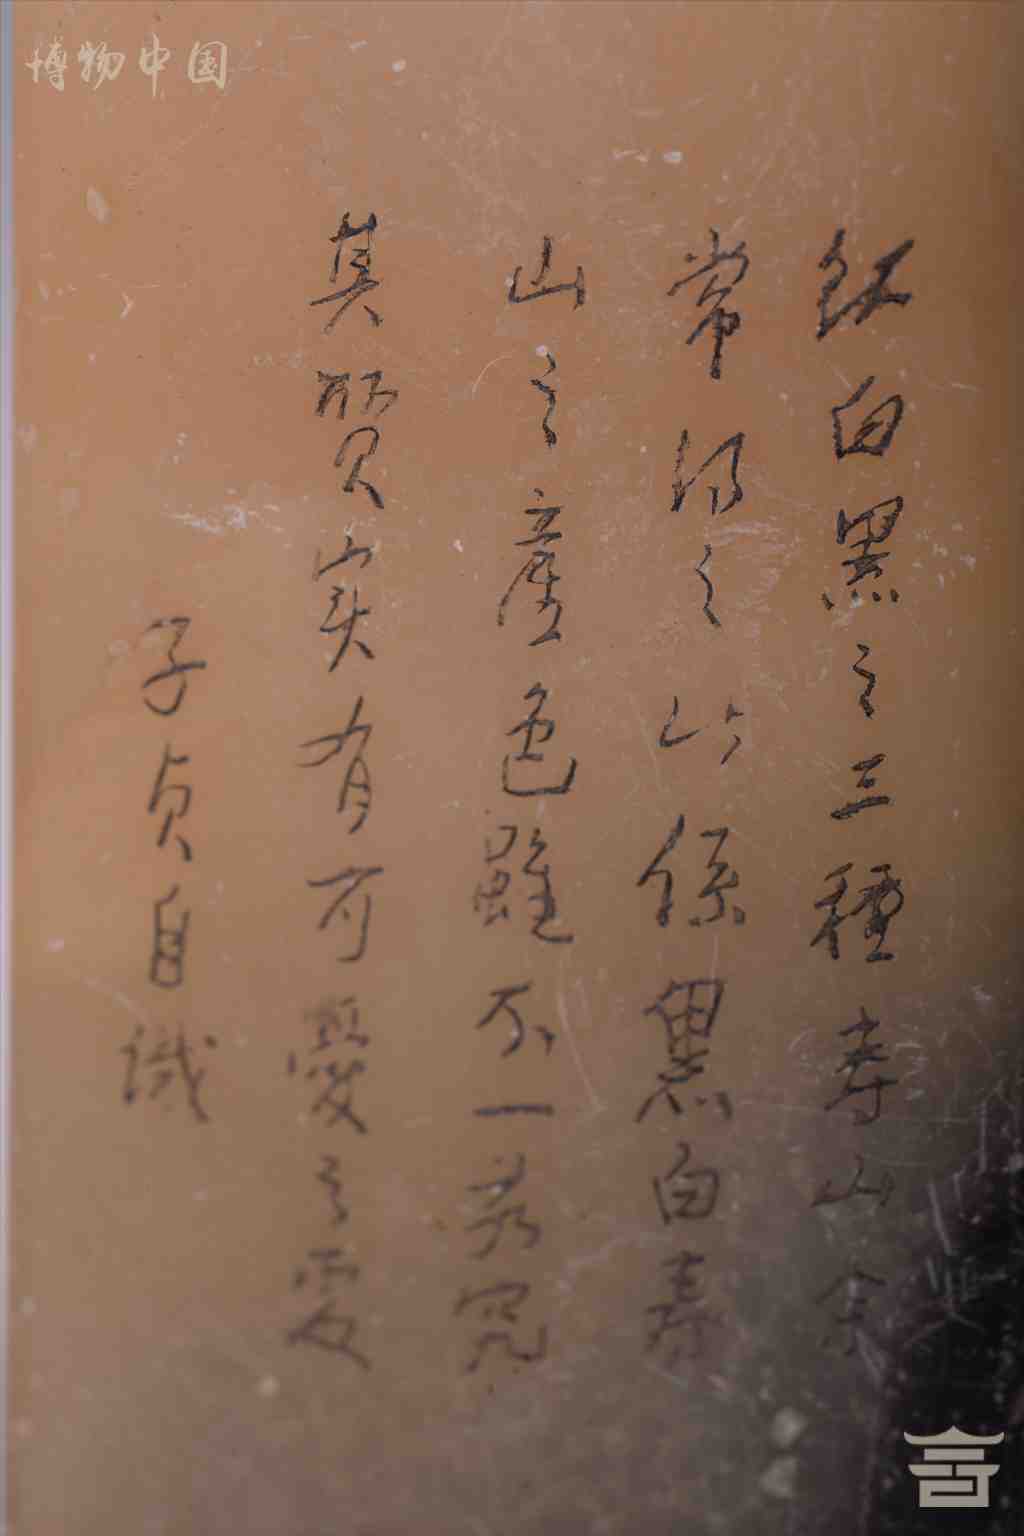 博物中国
红白黑之三種寿山余
常得之此係黑白寿
山之產色雖不一若究
其質实有可愛之處
子贞自識